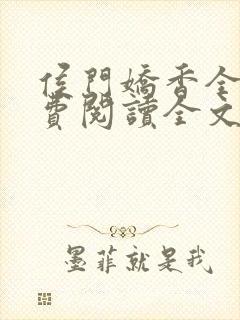 侯門嬌香全
費閱讀全文
墨菲就是我